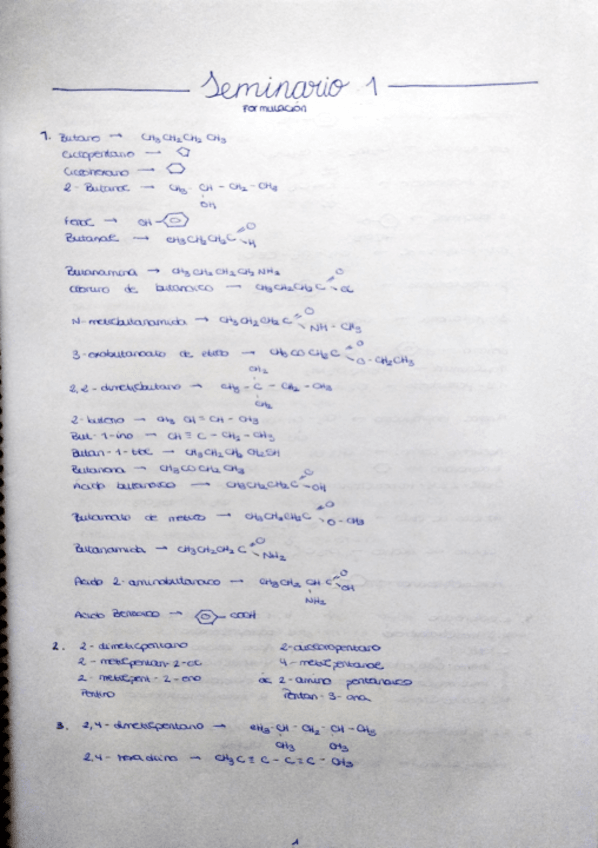 Seminario 1
Formulación
1. Butano → CH3 CH2 CH2 CH3
Ciclopentano →
Ciclohexano →
2-Butanol → CH3 - CH - CH2 - CH3
OH
Fenol → OH
Butanal → CH3 CH2 CH2 C O H
Butanamina → CH3 CH2 CH2 CH2 NH2
Cloruro de butanoico → CH3 CH2 CH2 C O Cl
N-metilbutanamida → CH3 CH2 CH2 C O NH - CH3
3-oxobutanoato de etilo → CH3 CO CH2 C O O - CH2CH3
CH3
2,2-dimetilbutano → CH3 - C - CH2 - CH3
CH3
2-buteno → CH3 CH = CH - CH3
But-1-ino → CH ≡ C - CH2 - CH3
Butan-1-tiol → CH3 CH2 CH2 CH2 SH
Butanona → CH3 CO CH2 CH3
Acido butanoico → CH3 CH2 CH2 C O OH
Butanoato de metilo → CH3 CH2 CH2 C O O - CH3
Butanamida → CH3 CH2 CH2 C O NH2
Acido 2-aminobutanoico → CH3 CH2 CH C O OH
NH2
Acido Benzoico → COOH
2. 2-dimetilpentano 2-cloropentano
2-metilpentan-2-ol 4-metilpentanal
2-metilpent-2-eno ác 2-amino pentanoico
Pentino Pentan-3-ona
3. 2,4-dimetilpentano → CH3 - CH - CH2 - CH - CH3
CH3 CH3
2,4-hexadiino → CH3 C ≡ C - C ≡ C - CH3
1